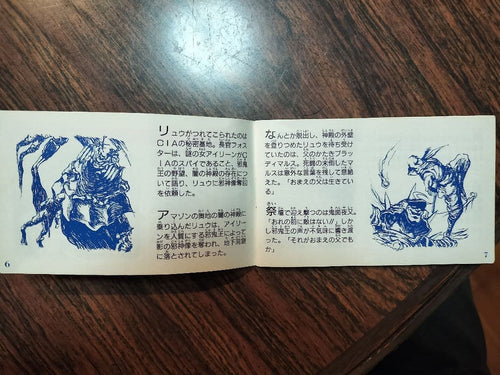 リュウがつれてこられたのは
CIAの秘密基地。長官フォス
ターは、謎の女アイリーンがC
IAのスパイであること、邪鬼
王の野望、闇の神殿の存在につ
いて語り、リュウに邪神像奪回
を依頼した。
アマゾンの奥地の闇の神殿に
乗り込んだリュウは、アイリー
ンを人質にする邪鬼王によって
影の邪神像を奪われ、地下洞窟
に落とされてしまった。
6
なんとか脱出し、神殿の外壁
を登りつめたリュウを待ち受け
ていたのは、父のかたきブラッ
ディマルス。死闘の末倒したマ
ルスは意外な言葉を残して息絶
えた。「おまえの父は生きてい
る」
祭壇で迎え撃つのは鬼面夜叉。
さい
「おれの前に敵はない!!」しか
し邪鬼王の声が不気味に響き渡
った。「それがおまえの父でも
か」
7